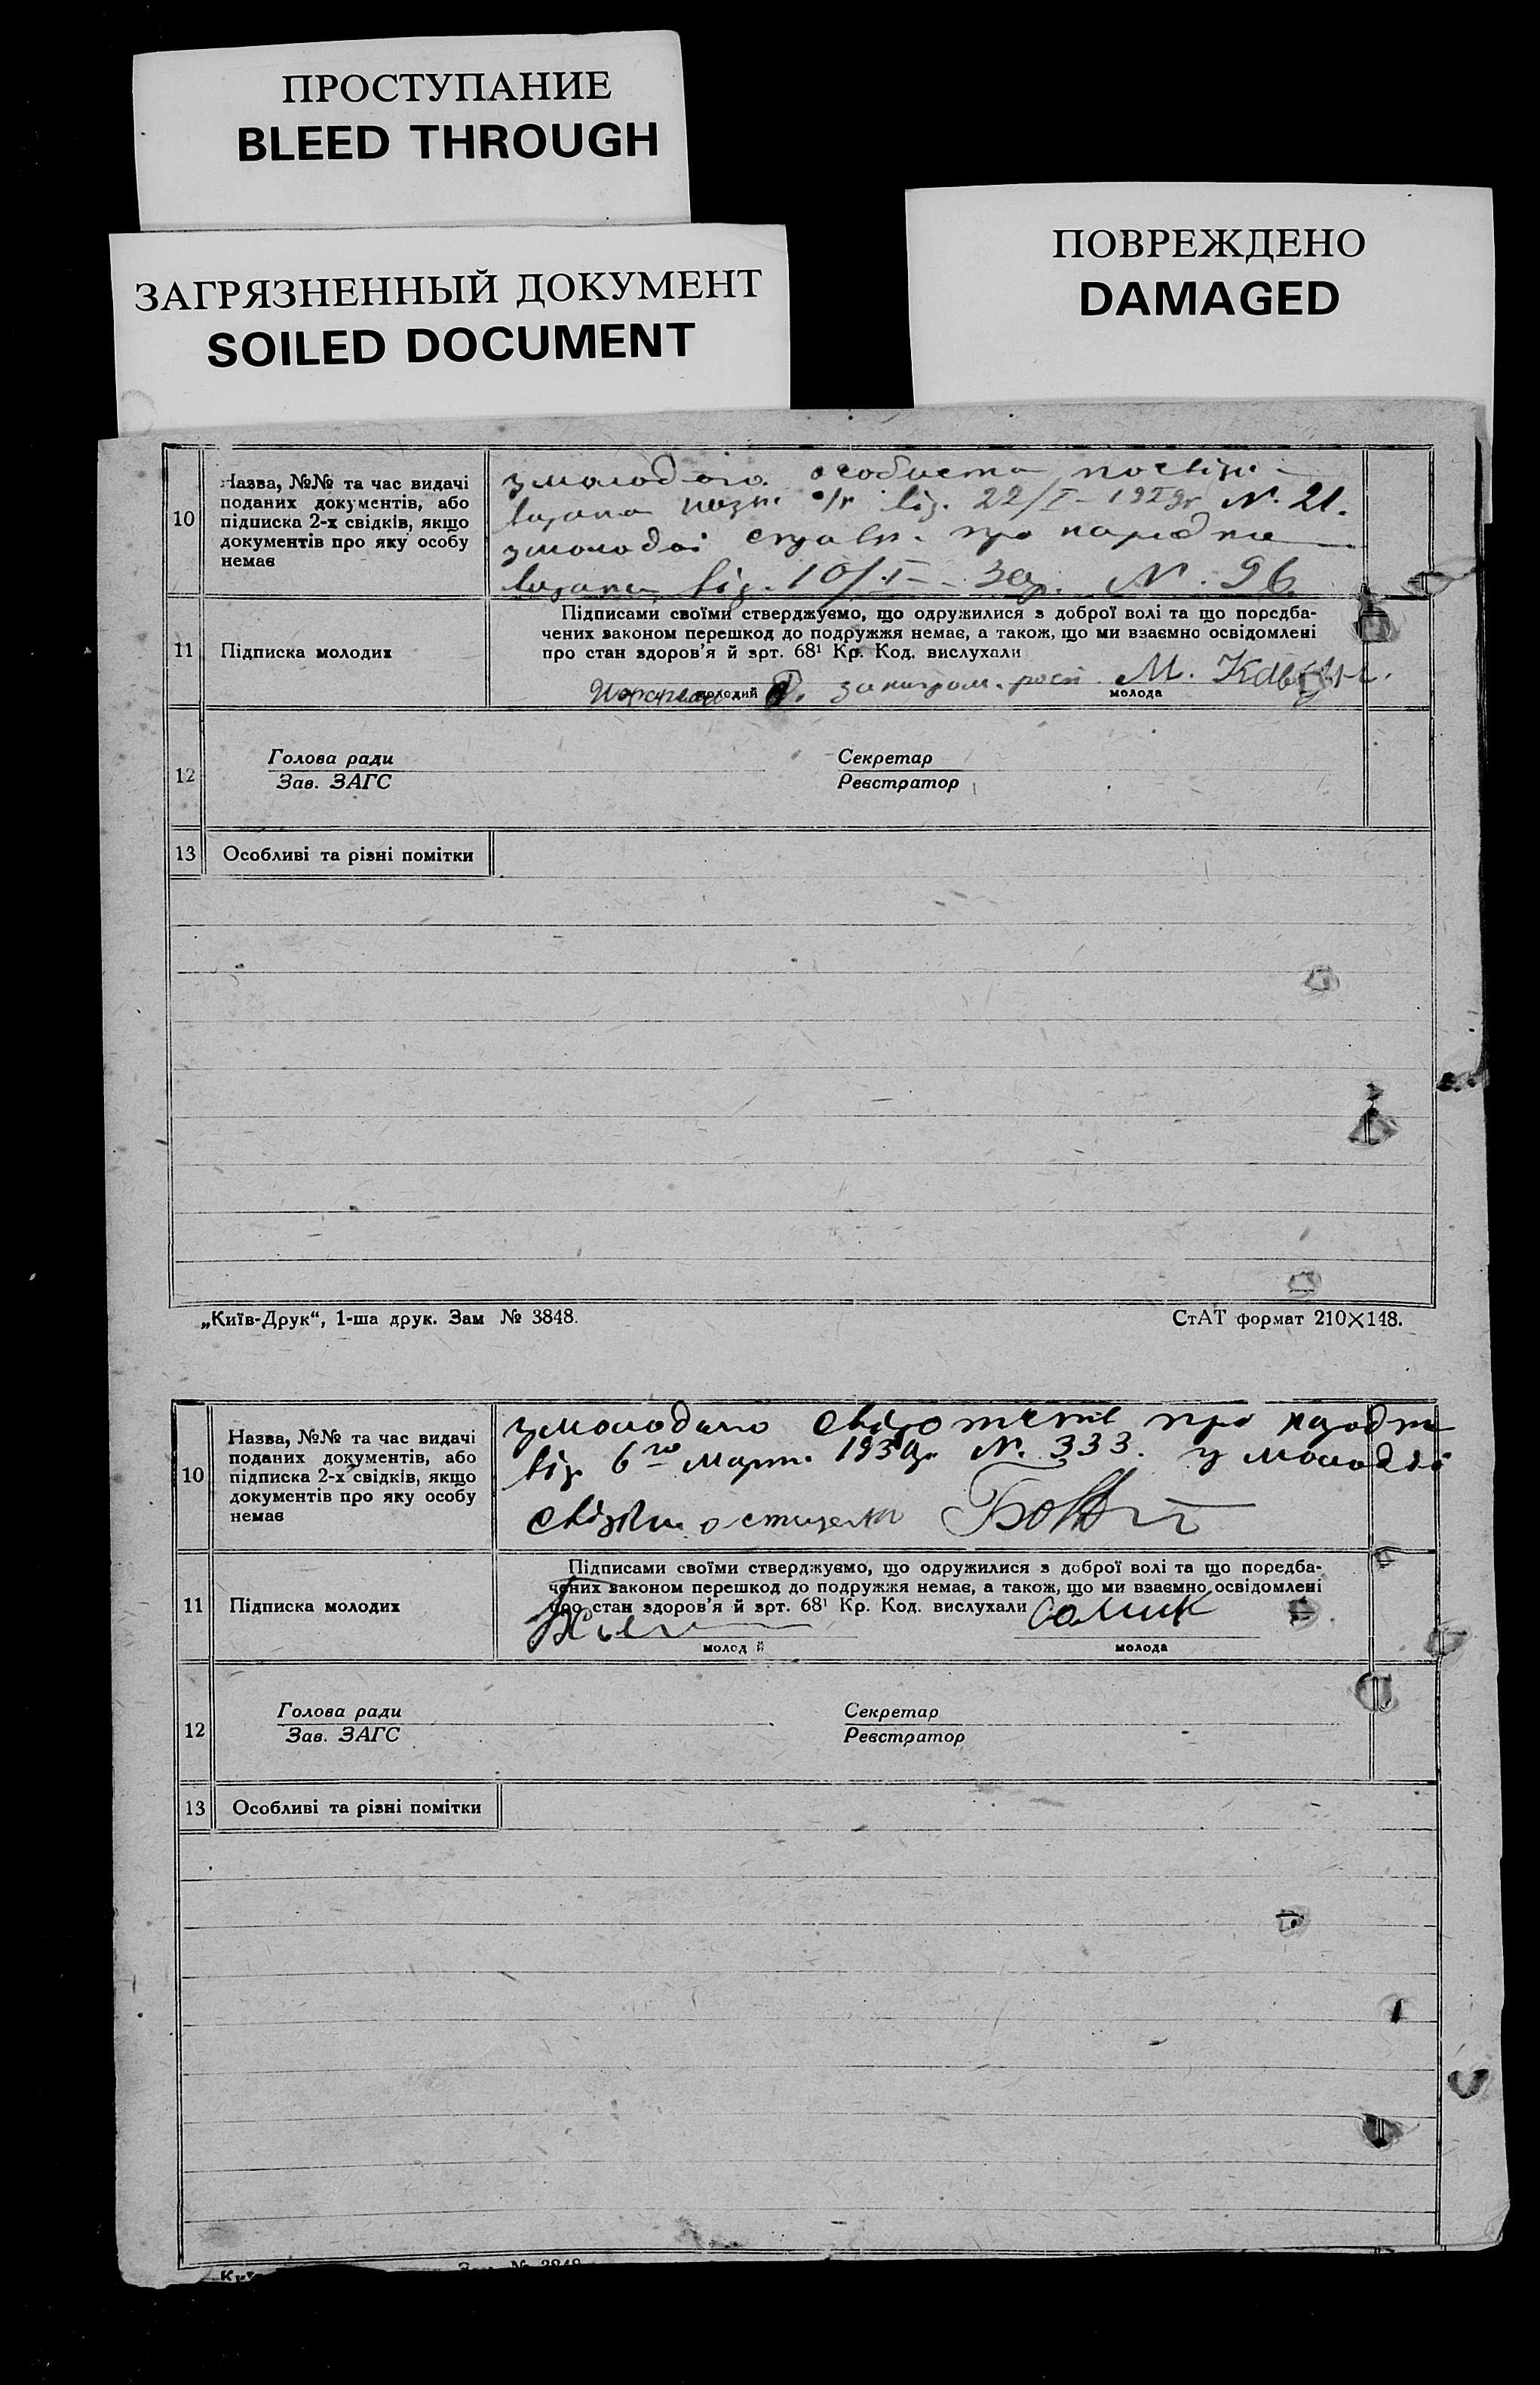 ПРОСТУПАНИЕ
BLEED THROUGH
ЗАГРЯЗНЕННЫЙ ДОКУМЕНТ
SOILED DOCUMENT
ПОВРЕЖДЕНО
DAMAGED
10
Назва, №№ та час видачі
поданих документів, або
підписка 2-х свідків, якщо
документів про яку особу
немає
у молодого особиста
від. 22/I- N. 21.
у молодої про
від. 10/I- 30р. N. 96
11
Підписка молодих
Підписами своїми стверджуємо, що одружилися з доброї волі та що поредба-
чених законом перешкод до подружжя немає, а також, що ми взаємно освідомлені
про стан здоров'я й арт. 68¹ Кр. Код. вислухали
М.
молодий
молода
12
Голова ради
Зав. ЗАГС
Секретар
Реєстратор
13
Особливі та різні помітки
„Київ-Друк“, 1-ша друк. Зам № 3848.
СтАТ формат 210×148.
10
Назва, №№ та час видачі
поданих документів, або
підписка 2-х свідків, якщо
документів про яку особу
немає
у молодого про
від 6го N. 333. у молодої
11
Підписка молодих
Підписами своїми стверджуємо, що одружилися з доброї волі та що поредба-
чених законом перешкод до подружжя немає, а також, що ми взаємно освідомлені
про стан здоров'я й арт. 68¹ Кр. Код. вислухали
Сомик
молод й
молода
12
Голова ради
Зав. ЗАГС
Секретар
Реєстратор
13
Особливі та різні помітки
№ 3848